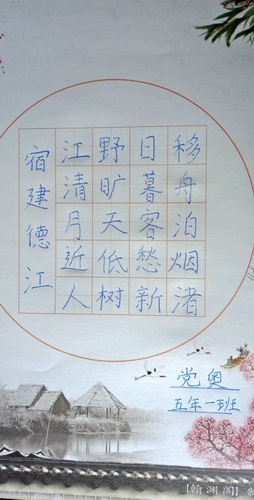 移舟泊烟渚
日暮客愁新
野旷天低树
江清月近人
宿建德江
党奥
五年一班
【翰渊阁】